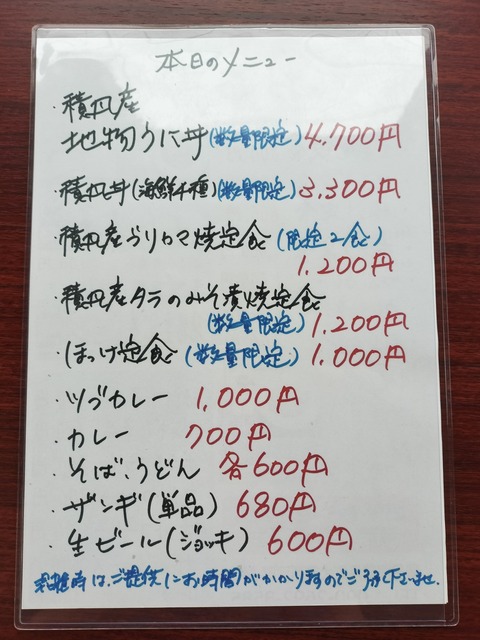 本日のメニュー
・積丹産
地物うに丼(数量限定)4,700円
・積丹丼(海鮮十種)(数量限定)3,300円
・積丹産ブリカマ焼定食(限定2食)
1,200円
・積丹産タラのみそ漬焼定食
(数量限定)1,200円
・ほっけ定食(数量限定)1,000円
・ツブカレー 1,000円
・カレー 700円
・そば、うどん 各600円
・ザンギ(単品)680円
・生ビール(ジョッキ)600円
混雑時は、ご提供にお時間がかかりますのでご了承下さいませ。